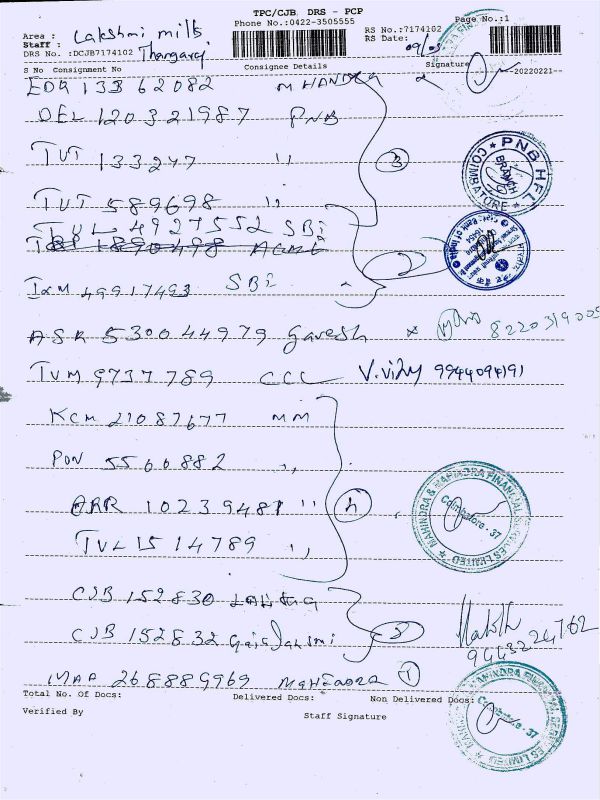 TPC/CJB DRS - PCP
Phone No.:0422-3505555
Page No.:1
Area : Lakshmi mills
RS No.:7174102
Staff : Thangaraj
RS Date: 09/05
DRS No. :DCJB7174102
S No Consignment No Consignee Details Signature
20220221
EDR 133 62082
DEL 120321987 PNB
TVT 133247 ,,
3
TVT 589698 ,,
TVL 4927552 SBI
1890498 ACME
IXM 49917493 SBI
ASR 530044979 Ganesh x 8220319005
TVM 9737789 CCC V.Vijay 9944094191
KCM 21087677 MM
PON 5560882 ,,
ARR 10239481 ,,
4
TVL 1514789 ,,
CJB 152830
CJB 152832
9443224762
MAP 268889969 Mahendra 1
Total No. Of Docs: Delivered Docs: Non Delivered Docs:
Verified By Staff Signature
PNB HFL
BRANCH
COIMBATORE
MAHINDRA & MAHINDRA FINANCIAL SERVICES LIMITED
Coimbatore - 37
MAHINDRA FINANCIAL SERVICES LIMITED
Coimbatore - 37